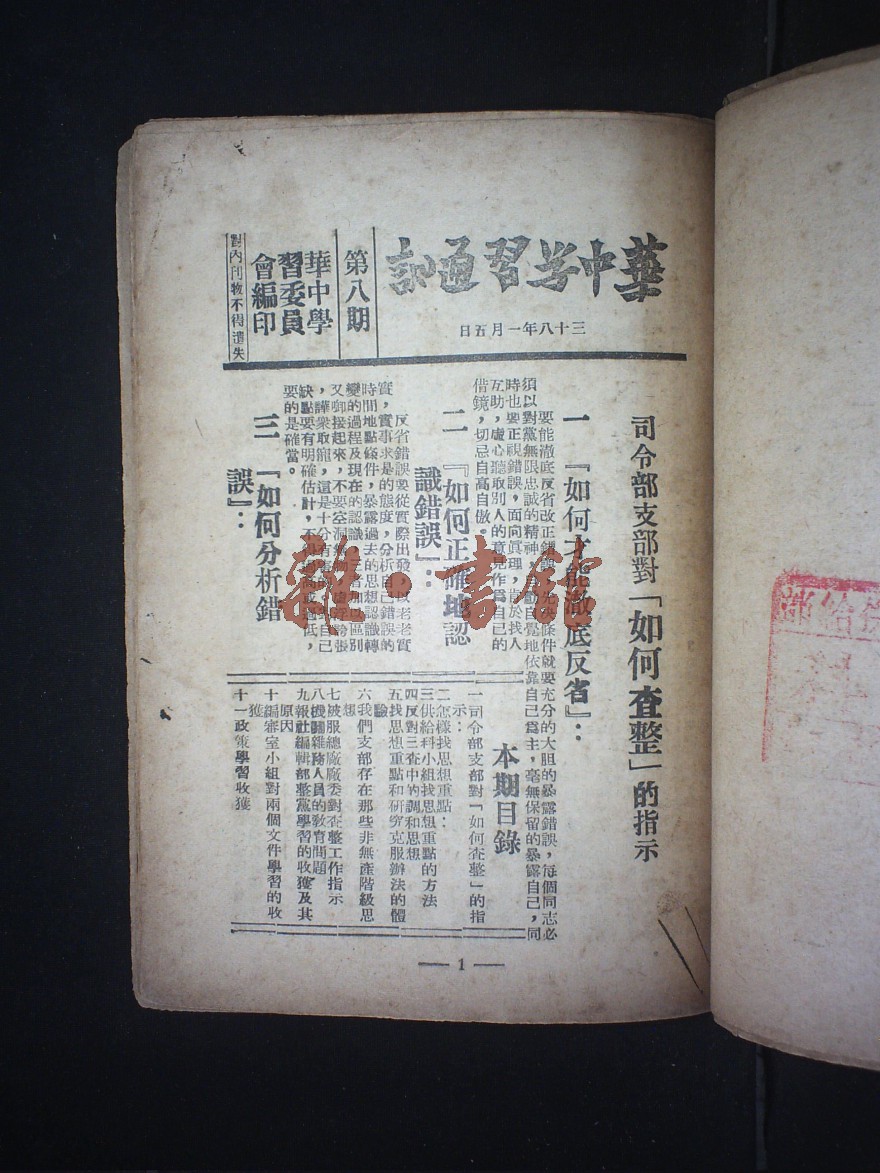 華中学習通訊
三十八年一月五日
第八期
華中學
習委員
會編印
對內刊物不得遺失
司令部支部對「如何查整」的指示
一 『如何才能澈底反省』：
要能澈底反省改正錯誤，條件就要充分的大胆的暴露錯誤，每個同志必
須以對黨無限忠誠的精神，自覺地依靠自己爲主，毫無保留的暴露自己，同
時也要正視錯誤，面向眞理，肯於找人
互助，虛心聽取別人的意見作爲自己的
借鏡，切忌自高自傲。
二 『如何正確地認
識錯誤』：
反省錯誤要從實際出發，以老老實
實，實事求是的態度，分析自己錯誤的
時間地點條件，暴露過去的思想認識轉
變的過程及現在的認識，區別
又啣接起來，不要空洞誇張
，譁衆取寵，這是十分有自己
缺點要有明確估計，不過低，
要的是確當。
三 『如何分析錯
誤』：
本期目錄
一司令部支部對「如何查整」的指
示：
二怎樣找思想重點：
三供給科小組找思想重點的方法
四反對三查中的調和思想
五找思想重點和研究克服辦法的體
驗
六我們支部存在那些非無產階級思
想
七被服總廠廠委對查整工作指示
八機關雜務人員的敎育問題
九報社編輯部整黨學習的收獲及其
原因
十編審室小組對兩個文件學習的收
獲
十一政策學習收獲
— 1 —
雜·書館